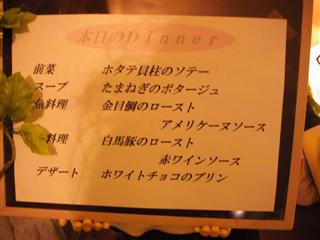 本日のDinner
前菜 ホタテ貝柱のソテー
スープ たまねぎのポタージュ
魚料理 金目鯛のロースト
アメリケーヌソース
料理 白馬豚のロースト
赤ワインソース
デザート ホワイトチョコのプリン